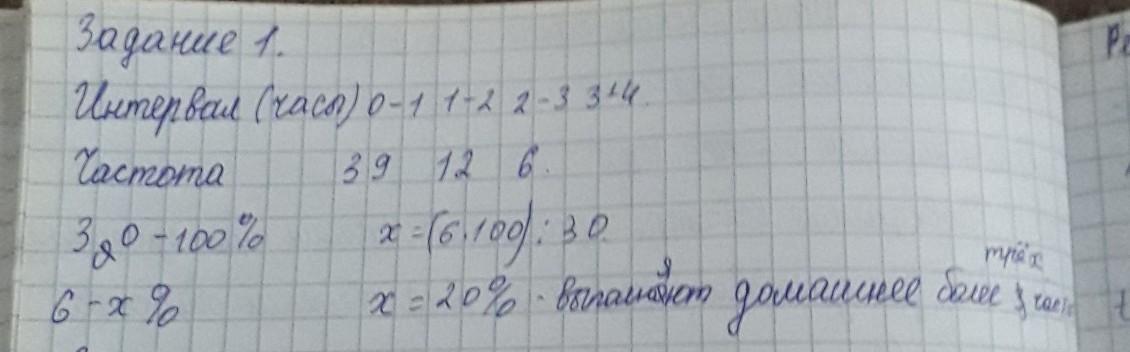 Задание 1.
Интервал (часы) 0-1 1-2 2-3 3-4.
Частота 3 9 12 6.
30 - 100% x = (6·100) : 30.
6 - x % x = 20% - выполняют домашнее более трёх